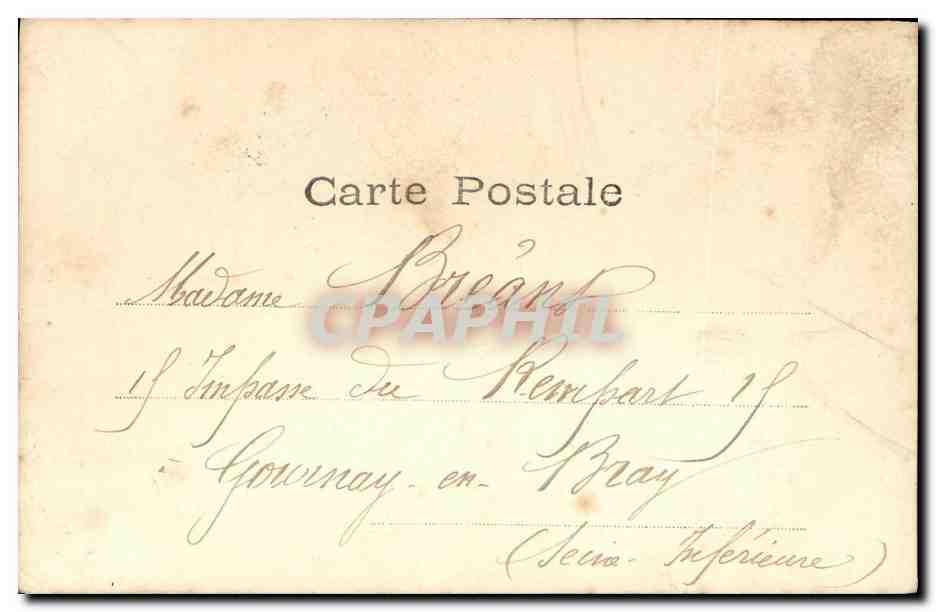 Carte Postale
Madame Bréant
CPAPHIL
15 Impasse du Rempart 15
à Gournay-en-Bray
(Seine-Inférieure)